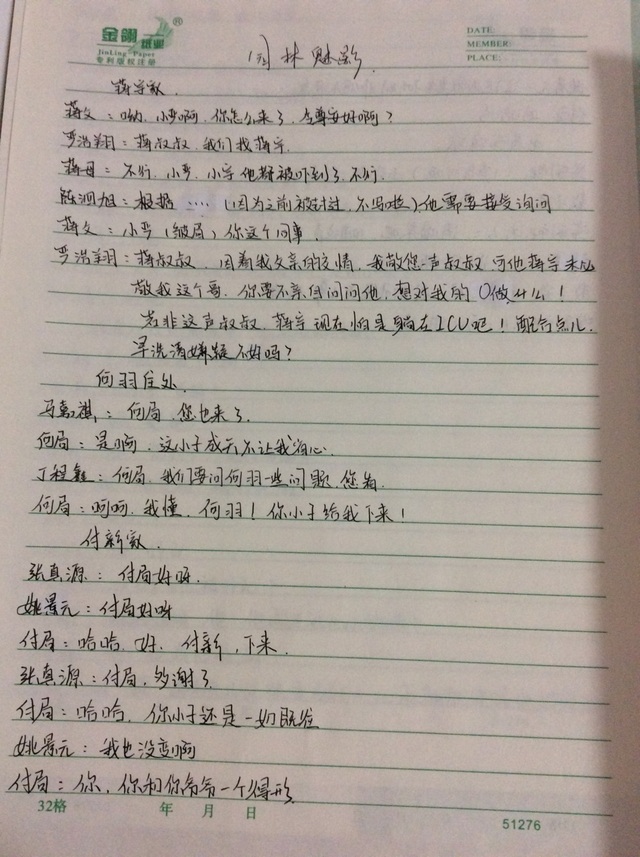 金翎纸业
JinLing-Paper
专利版权注册
DATE:
MEMBER:
PLACE:
园林魅影
蒋宇家
蒋父：哟，小严啊，你怎么来了，令尊安好啊？
严浩翔：蒋叔叔，我们找蒋宇
蒋母：不行，小严，小宇他都被吓到了，不行
陈泗旭：根据……（因为之前被封过，不写啦）他需要接受询问
蒋父：小严（皱眉）你这个同事
严浩翔：蒋叔叔，因着我父亲的交情，我敬您一声叔叔，可他蒋宇未必
敬我这个哥，你要不亲自问问他，想对我的〇做什么！
若非这声叔叔，蒋宇现在怕是躺在ICU吧！配合点儿，
早洗清嫌疑不好吗？
何羽住处
马嘉祺：何局，您也来了
何局：是啊，这小子成天不让我省心
丁程鑫：何局，我们要问何羽一些问题，您看
何局：呵呵，我懂，何羽！你小子给我下来！
付新家
张真源：付局好呀
姚景元：付局好呀
付局：哈哈，好，付新，下来
张真源：付局，多谢了
付局：哈哈，你小子还是一如既往
姚景元：我也没变啊
付局：你，你和你爷爷一个得形
32格
年 月 日
51276